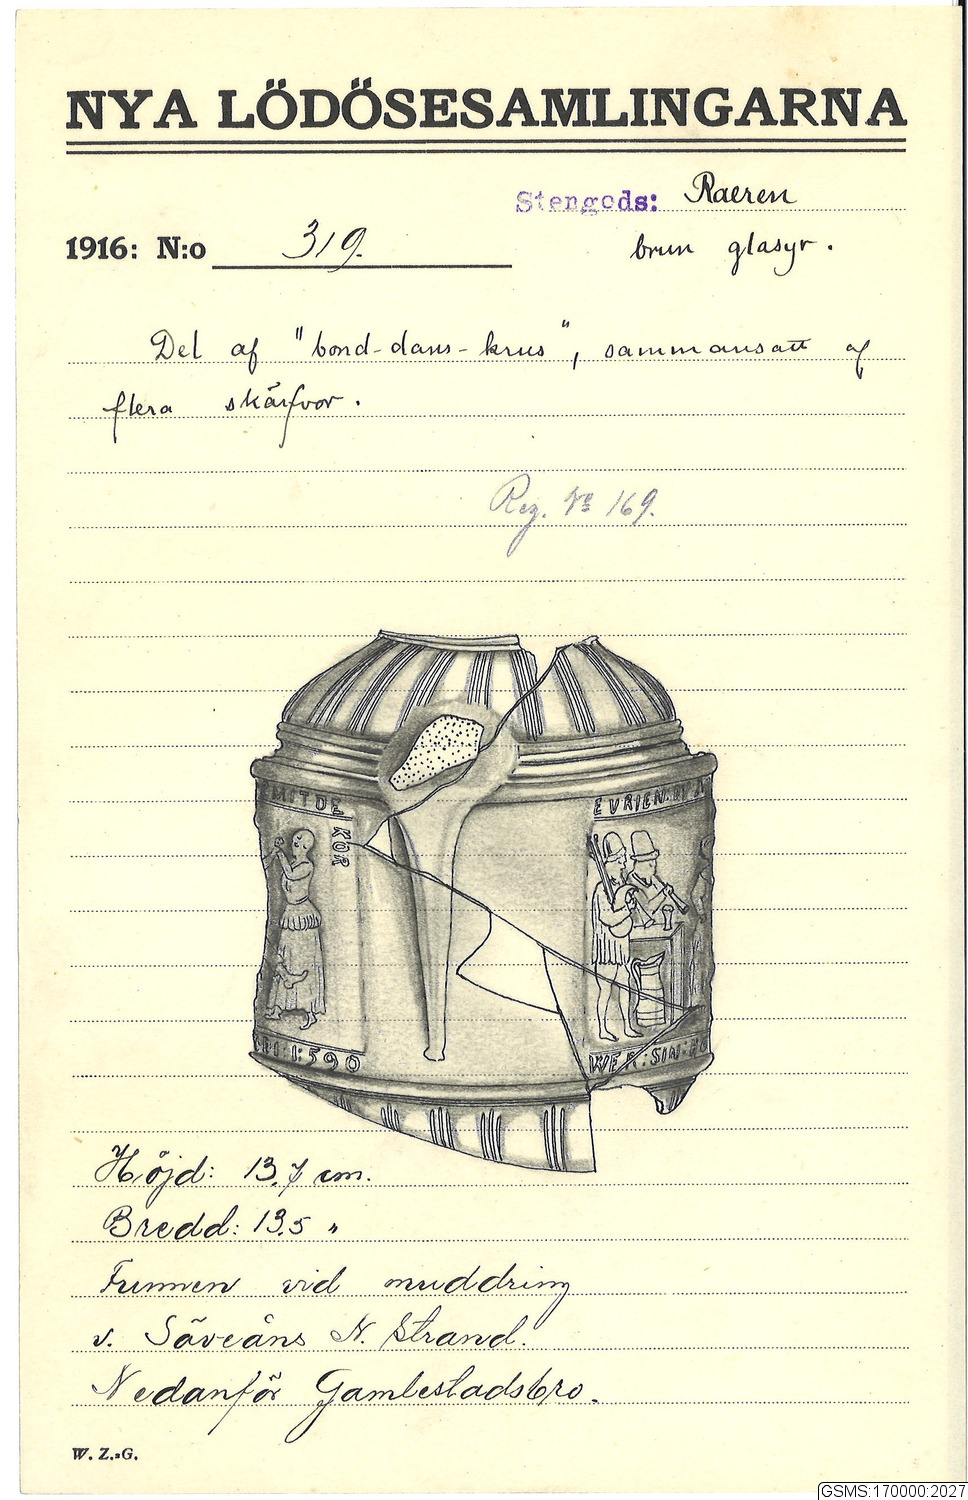 NYA LÖDÖSESAMLINGARNA
Stengods: Raeren
1916: N:o 319.
brun glasyr.
Del af "bond-dans-krus", sammansatt af
flera skärfvor.
Reg. No 169.
MITDE
KOR
EVRIEN
1:590
WER:SIN:
Höjd: 13,7 cm.
Bredd: 13,5 "
Funnen vid muddring
v. Säveåns N. Strand.
Nedanför Gamlestadsbro.
W. Z.-G.
GSMS:170000:2027